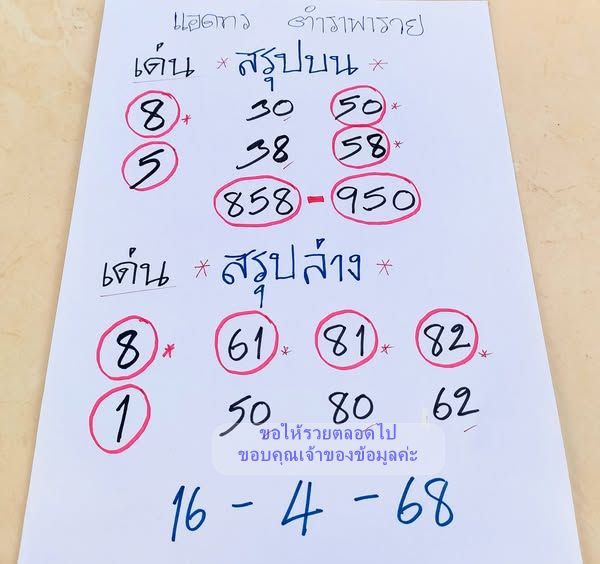 แอดทร ตำราพารวย
เด่น * สรุปบน *
8 * 30 50 *
5 38 58 *
858 - 950
เด่น * สรุปล่าง *
8 * 61 * 81 * 82 *
1 50 80 62
ขอให้รวยตลอดไป
ขอบคุณเจ้าของข้อมูลค่ะ
16 - 4 - 68